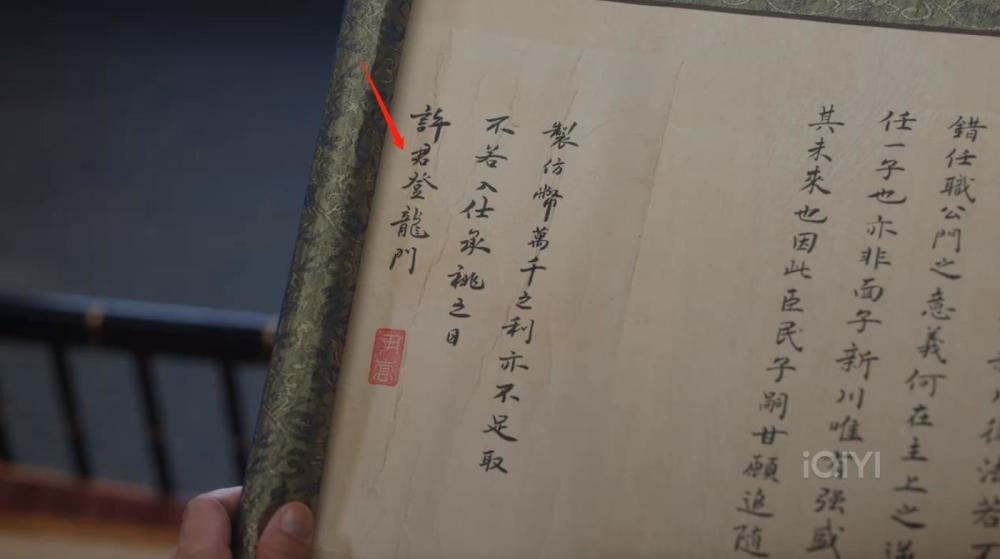 法若不
錯任職公門之意義何在主上之
任一子也亦非面子新川唯有強
其未來也因此臣民子嗣甘願追隨
製仿幣萬千之利亦不足取
不若入仕承祧之日
許君登龍門
尹嵩
iQIYI